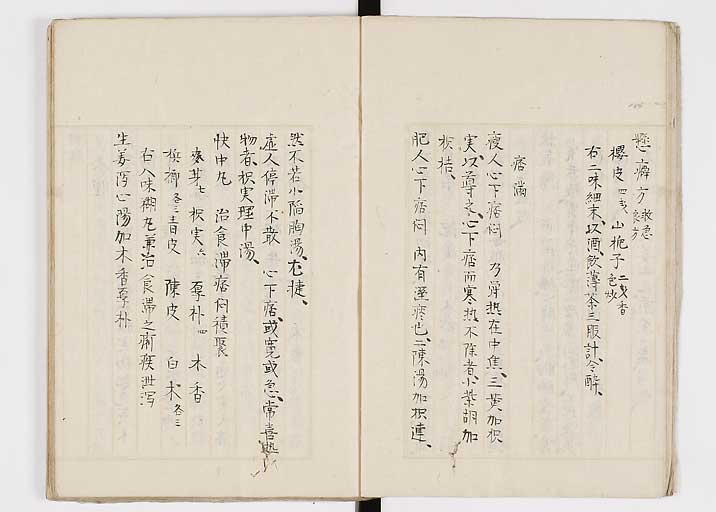 懸癖方 救急良方
櫻皮 四戔 山梔子 二戔香色炒
右二味細末、以酒飲薄茶三服計、令酔、
痞滿
瘦人心下痞悶 乃鬱热在中焦、三黄加枳
実、以導之、心下痞而寒热不除者、小柴胡加
枳桔、
肥人心下痞悶 内有溼痰也、二陳湯加枳連、
然不若小陥胸湯、尤捷、
虚人停滞不散 心下痞、或寛或急、常喜热
物者、枳実理中湯、
快中丸 治食滞痞悶積聚
麥芽 七 枳実 六 厚朴 四 木香
檳榔 各三 青皮 陳皮 白术 各三
右八味糊丸、兼治食滞之痢疾泄瀉
生姜瀉心湯加木香厚朴